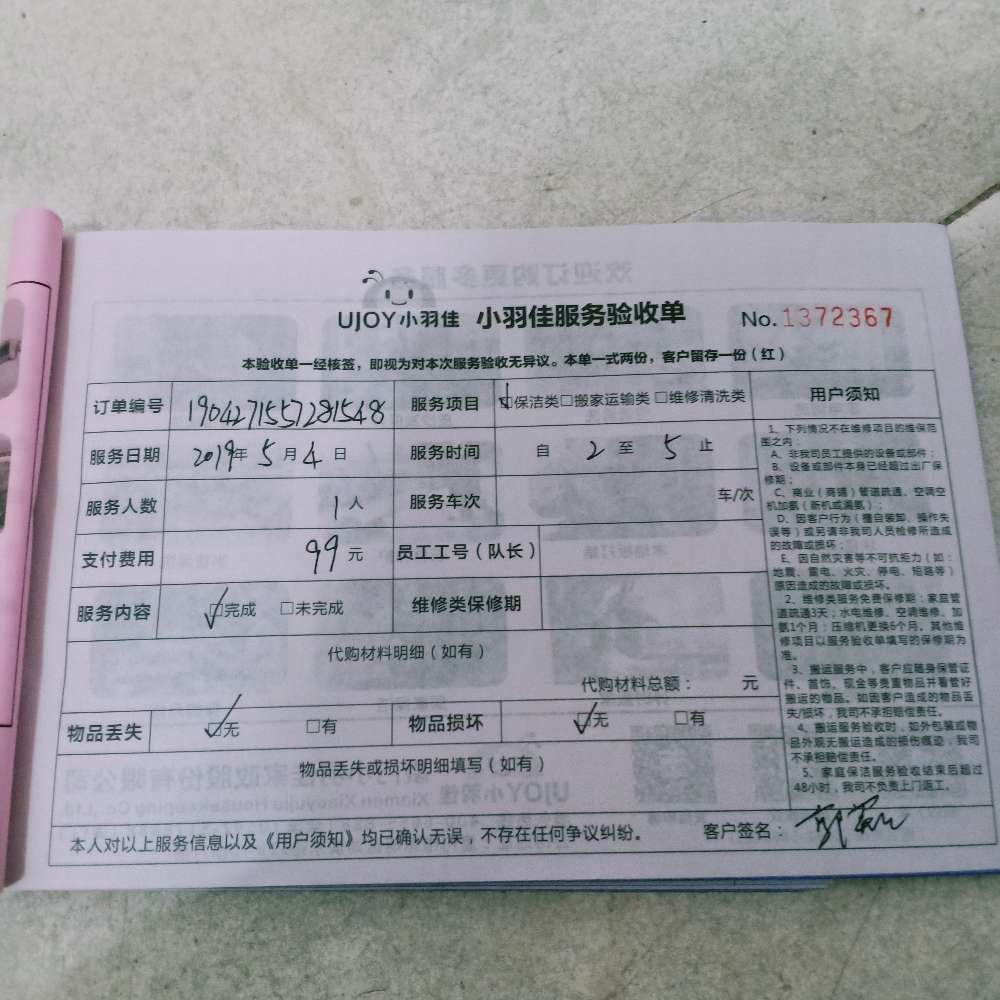 UJOY小羽佳 小羽佳服务验收单 No.1372367
本验收单一经核签，即视为对本次服务验收无异议。本单一式两份，客户留存一份（红）
订单编号 1904271557281548 服务项目 ☑保洁类□搬家运输类 □维修清洗类
服务日期 2019年5月4日 服务时间 自 2 至 5 止
服务人数 1人 服务车次 车/次
支付费用 99元 员工工号（队长）
服务内容 ☑完成 □未完成 维修类保修期
代购材料明细（如有）
代购材料总额： 元
物品丢失 ☑无 □有 物品损坏 ☑无 □有
物品丢失或损坏明细填写（如有）
用户须知
1、下列情况不在维修项目的维保范
围之内：
A、非我司员工提供的设备或部件；
B、设备或部件本身已经超过出厂保
修期；
C、商业（商铺）管道疏通、空调空
机加氨（新机或漏氨）；
D、因客户行为（擅自装卸、操作失
误等）或另请非我司人员检修所造成
的故障或损坏；
E、因自然灾害等不可抗拒力（如：
地震、雷电、火灾、停电、短路等）
原因造成的故障或损坏。
2、维修类服务免费保修期：家庭管
道疏通3天；水电维修、空调维修、加
氨1个月；压缩机更换6个月。其他维
修项目以服务验收单填写的保修期为
准。
3、搬运服务中，客户应随身保管证
件、首饰、现金等贵重物品并看管好
搬运的物品。如因客户造成的物品丢
失/损坏，我司不承担赔偿责任。
4、搬运服务验收时，如外包装或物
品外观无搬运造成的损伤痕迹，我司
不承担赔偿责任。
5、家庭保洁服务验收结束后超过
48小时，我司不负责上门返工。
本人对以上服务信息以及《用户须知》均已确认无误，不存在任何争议纠纷。 客户签名：